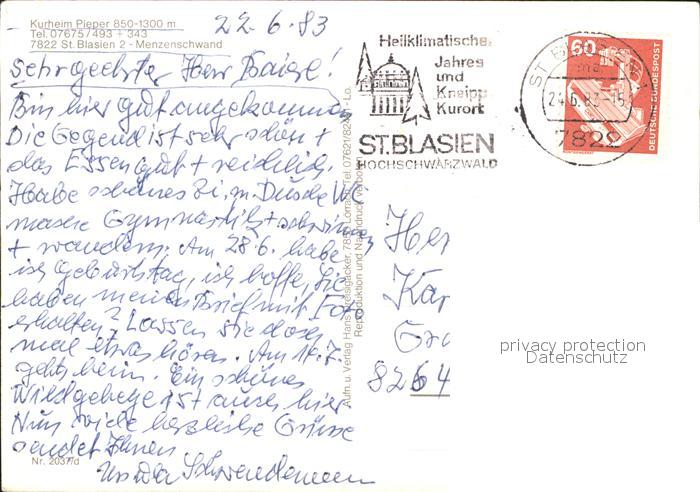 Kurheim Pieper 850-1300 m
Tel. 07675/493 + 343
7822 St. Blasien 2 - Menzenschwand
22.6.83
Sehr geehrter Herr
Bin hier gut angekommen
Die Gegend ist sehr schön +
das Essen gut + reichlich.
Habe schönes Zi. m. Dusche WC
mache Gymnastik + schwimmen
+ wandern. Am 28.6. habe
ich Geburtstag, ich hoffe, Sie
haben meinen Brief mit Foto
erhalten? Lassen Sie doch
mal etwas hören. Am 16.7.
gehts heim. Ein schönes
Wildgehege ist auch hier.
Nun viele herzliche Grüsse
sendet Ihnen
Nr. 2037/d
Aufn. u. Verlag Hans
Reproduktion und Nachdruck verboten
Heilklimatischer
Jahres
und
Kneipp
Kurort
ST.BLASIEN
HOCHSCHWARZWALD
24.6.83-15
7822
60
DEUTSCHE BUNDESPOST
Her
Kar
8264
privacy protection
Datenschutz